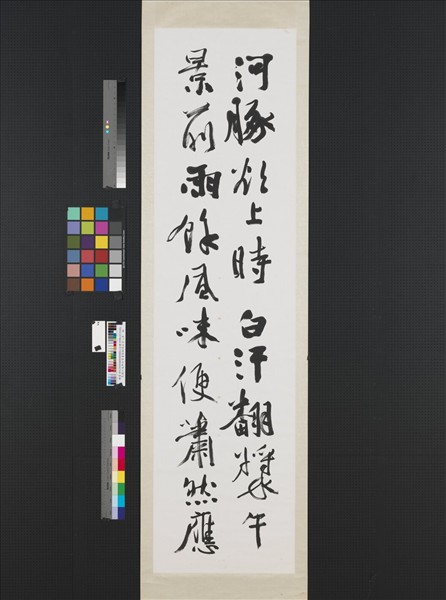 河豚欲上時 白汗翻漿午
景前雨餘風味便蕭然應